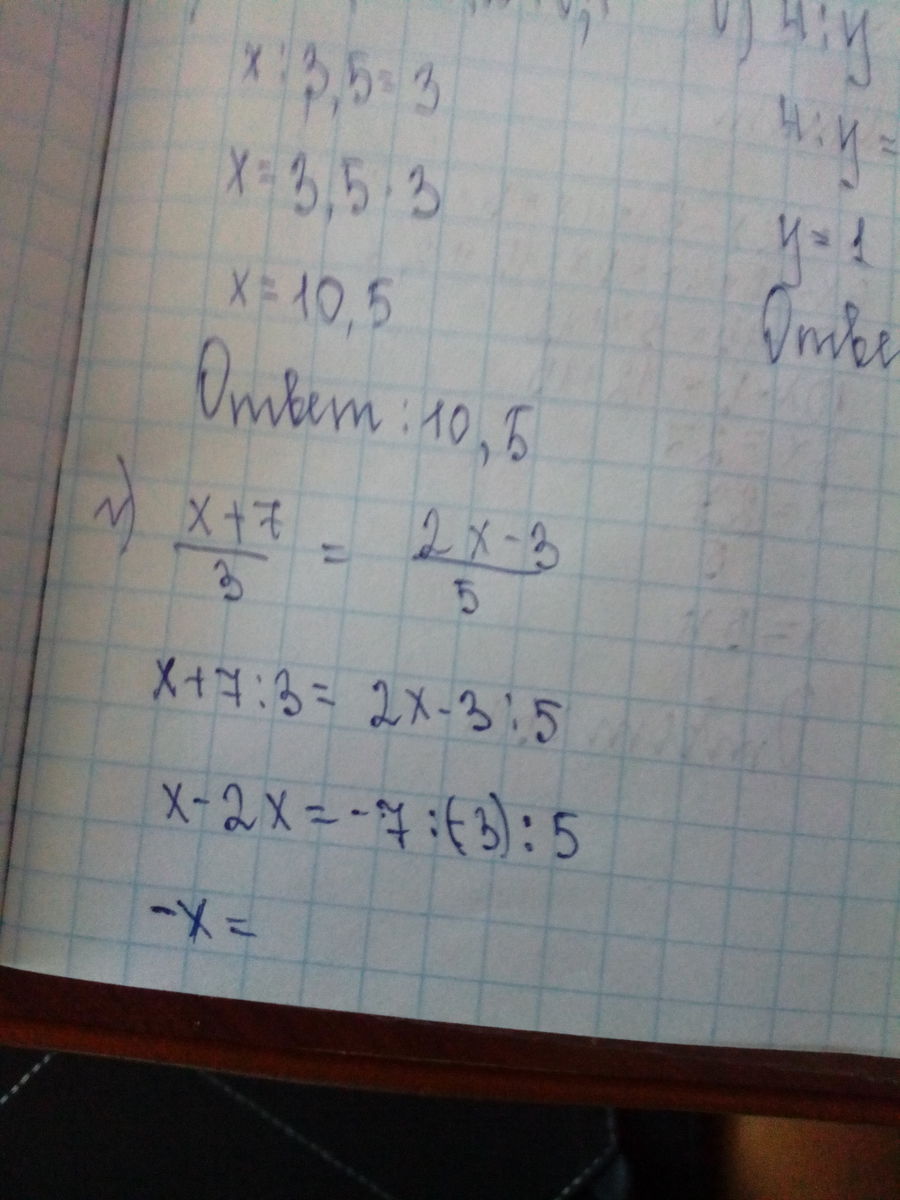 x:3,5=3
x=3,5·3
x=10,5
Ответ:10,5
4:y
4:y=
y=1
Отве
г) x+7/3 = 2x-3/5
x+7:3= 2x-3:5
x-2x=-7:(-3):5
-x=